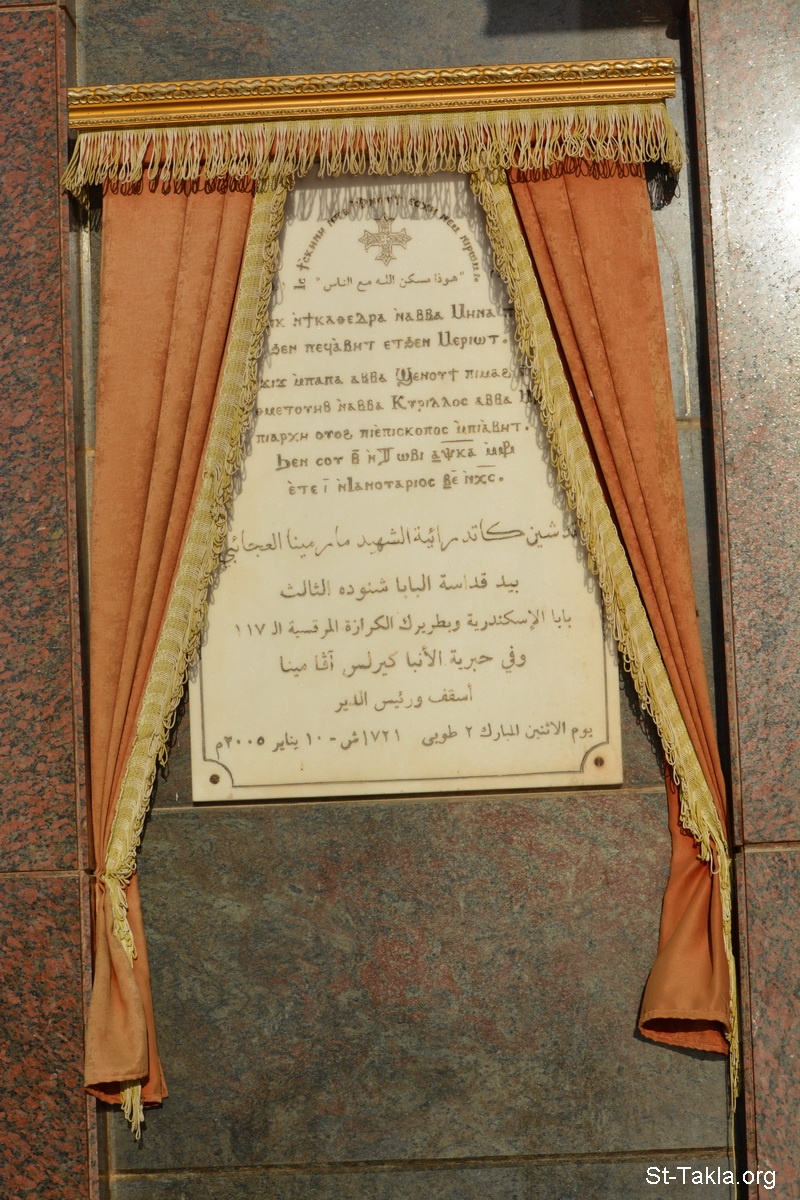 "هوذا مسكن الله مع الناس"
ⲛϯⲕⲁⲑⲉⲇⲣⲁ ⲛⲁⲃⲃⲁ Ⲙⲏⲛⲁ
ϧⲉⲛ ⲡⲉϥⲁⲃⲏⲧ ⲉⲧϧⲉⲛ Ⲙⲉⲣⲓⲱⲧ.
ⲙⲡⲁⲡⲁ ⲁⲃⲃⲁ Ϣⲉⲛⲟⲩϯ
ⲛⲁⲃⲃⲁ Ⲕⲩⲣⲓⲗⲗⲟⲥ ⲁⲃⲃⲁ
ⲡⲓⲁⲣⲭⲏ ⲟⲩⲟϩ ⲡⲓⲉⲡⲓⲥⲕⲟⲡⲟⲥ ⲙⲡⲓⲁⲃⲏⲧ.
Ϧⲉⲛ ⲥⲟⲩ ⲃ̅ ⲛⲦⲱⲃⲓ ⲁⲯⲕⲁ
ⲉⲧⲉ ⲓ̅ ⲛⲒⲁⲛⲟⲩⲁⲣⲓⲟⲥ ⲃ̅ⲉ̅ ⲛⲭ̅ⲥ̅.
تدشين كاتدرائية الشهيد مارمينا العجائبي
بيد قداسة البابا شنوده الثالث
بابا الإسكندرية وبطريرك الكرازة المرقسية الـ ١١٧
وفي حبرية الأنبا كيرلس آڤا مينا
أسقف ورئيس الدير
يوم الاثنين المبارك ٢ طوبى ١٧٢١ش - ١٠ يناير ٢٠٠٥م
St-Takla.org